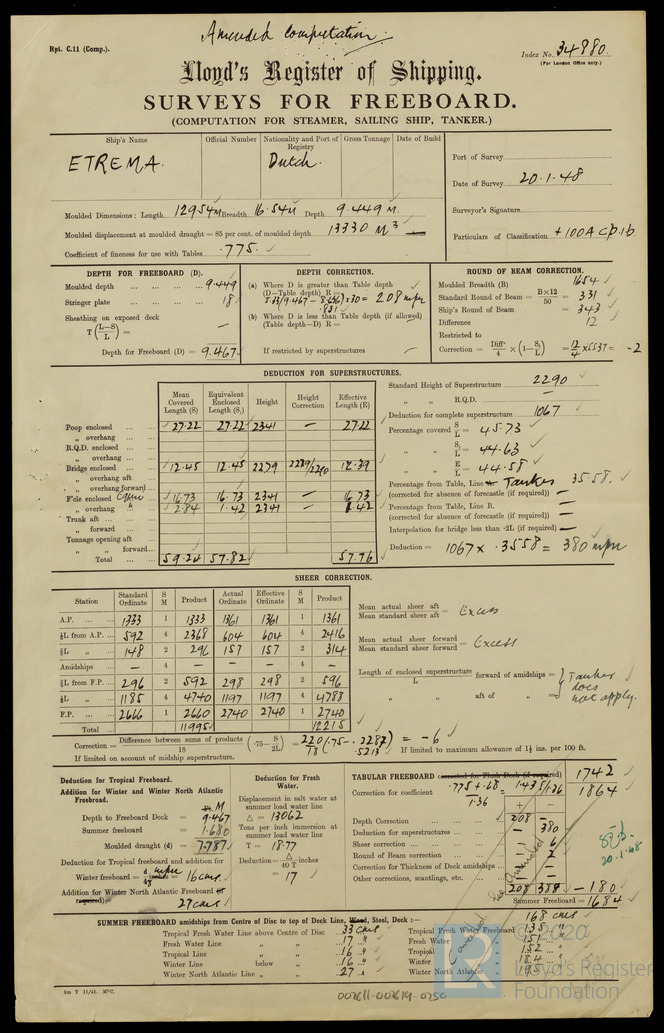 Amended computation.
Rpt. C.11 (Comp.).
Index No. 34880.
(For London Office only.)
Lloyd's Register of Shipping.
SURVEYS FOR FREEBOARD.
(COMPUTATION FOR STEAMER, SAILING SHIP, TANKER.)
Ship's Name Official Number Nationality and Port of Registry Gross Tonnage Date of Build
ETREMA. Dutch.
Port of Survey
Date of Survey 20.1.48
Surveyor's Signature
Particulars of Classification +100A
Moulded Dimensions: Length 129.54M Breadth 16.54M Depth 9.449 M.
Moulded displacement at moulded draught = 85 per cent. of moulded depth 13330 M³ tons
Coefficient of fineness for use with Tables .775.
DEPTH FOR FREEBOARD (D).
Moulded depth ... 9.449
Stringer plate ... 18
Sheathing on exposed deck
T (L-S/L) = —
Depth for Freeboard (D) = 9.467
DEPTH CORRECTION.
(a) Where D is greater than Table depth
(D—Table depth) R =
(b) Where D is less than Table depth (if allowed)
(Table depth—D) R =
If restricted by superstructures —
ROUND OF BEAM CORRECTION.
Moulded Breadth (B) 1654
Standard Round of Beam = B×12/50 = 331
Ship's Round of Beam = 343
Difference 12
Restricted to
Correction = Diffce/4 × (1-S₁/L) = 12/4 × .5537 = -2
DEDUCTION FOR SUPERSTRUCTURES.
Mean Covered Length (S) Equivalent Enclosed Length (S₁) Height Height Correction Effective Length (E)
Poop enclosed 27.22 27.22 2341 — 27.22
„ overhang
R.Q.D. enclosed
„ overhang
Bridge enclosed 12.45 12.45 2279 2279/2290 12.39
„ overhang aft
„ overhang forward
F'cle enclosed 16.73 16.73 2341 — 16.73
„ overhang 2.84 1.42 2341 — 1.42
Trunk aft
„ forward
Tonnage opening aft
„ „ forward
Total 59.24 57.82 57.76
Standard Height of Superstructure 2290
„ „ R.Q.D. —
Deduction for complete superstructure 1067
Percentage covered S/L = 45.73
„ „ S₁/L = 44.63
„ „ E/L = 44.58
Percentage from Table, Line Tanker 35.58.
(corrected for absence of forecastle (if required)) —
Percentage from Table, Line B. —
(corrected for absence of forecastle (if required)) —
Interpolation for bridge less than ·2L (if required) —
Deduction = 1067 × .3558 = 380
SHEER CORRECTION.
Station Standard Ordinate S M Product Actual Ordinate Effective Ordinate S M Product
A.P. 1333 1 1333 1361 1361 1 1361
⅙L from A.P. 592 4 2368 604 604 4 2416
⅓L „ 148 2 296 157 157 2 314
Amidships — 4 — — — 4 —
⅓L from F.P. 296 2 592 298 298 2 596
⅙L „ 1185 4 4740 1197 1197 4 4788
F.P. 2666 1 2660 2740 2740 1 2740
Total 11995 12215
Mean actual sheer aft / Mean standard sheer aft = Excess
Mean actual sheer forward / Mean standard sheer forward = Excess
Length of enclosed superstructure / L forward of amidships =
„ „ aft of „ = Tanker does not apply.
Correction = Difference between sums of products/18 (·75— S/2L) = 220/18 (.75 - .2287) = -6
.5213
If limited to maximum allowance of 1½ ins. per 100 ft.
If limited on account of midship superstructure.
Deduction for Tropical Freeboard.
Addition for Winter and Winter North Atlantic Freeboard.
M
Depth to Freeboard Deck = 9.467
Summer freeboard = 1.680
Moulded draught (d) = 7.787
Deduction for Tropical freeboard and addition for Winter freeboard = 16 cms
Addition for Winter North Atlantic Freeboard (if required) = 27 cms
Deduction for Fresh Water.
Displacement in salt water at summer load water line
Δ = 13062
Tons per inch immersion at summer load water line
T = 18.77
Deduction = Δ/40 T inches
= 17
TABULAR FREEBOARD corrected for Flush Deck (if required) 1742
Correction for coefficient .775+.68/1.36 = 1.435/1.36 1864
+ —
Depth Correction 208 —
Deduction for superstructures — 380
Sheer correction — 6
Round of Beam correction — 2
Correction for Thickness of Deck amidships — —
Other corrections, scantlings, etc. — —
208 388 -180
Summer Freeboard = 1684
20.1.48
SUMMER FREEBOARD amidships from Centre of Disc to top of Deck Line, Wood, Steel, Deck :— 168 cms
Tropical Fresh Water Line above Centre of Disc 33 cms Tropical Fresh Water Freeboard 135 „
Fresh Water Line „ „ 17 „ Fresh Water „ 151 „
Tropical Line „ „ 16 „ Tropical „ 152 „
Winter Line below „ 16 „ Winter „ 184 „
Winter North Atlantic Line „ „ 27 „ Winter North Atlantic „ 195 „
© 2020
Lloyd's Register
Foundation
5m T 11/41. M°C.
002611-002619-0250